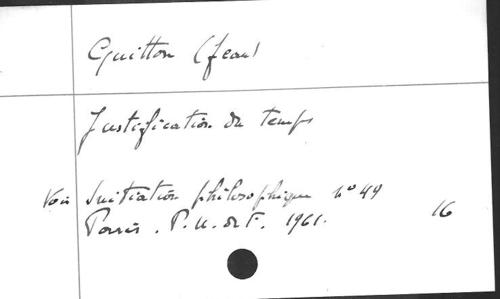 Guitton (Jean)
Justification du temps
Voir Initiation philosophique n° 49
Paris. P. U. de F. 1961.
16